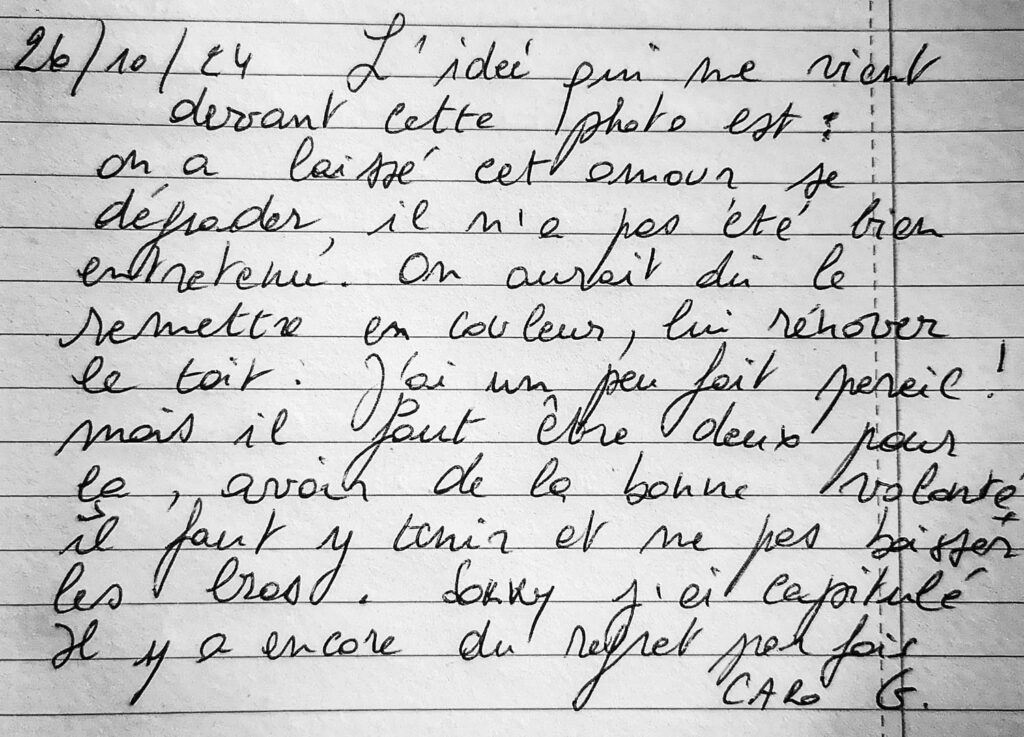 26/10/24 L'idée qui me vient
devant cette photo est :
on a laissé cet amour se
dégrader, il n'a pas été bien
entretenu. On aurait dû le
remettre en couleur, lui rénover
le toit. J'ai un peu fait pareil !
mais il faut être deux pour
ça, avoir de la bonne volonté
il faut y tenir et ne pas baisser
les bras. Sorry j'ai capitulé
Il y a encore du regret par fois
CARO G.